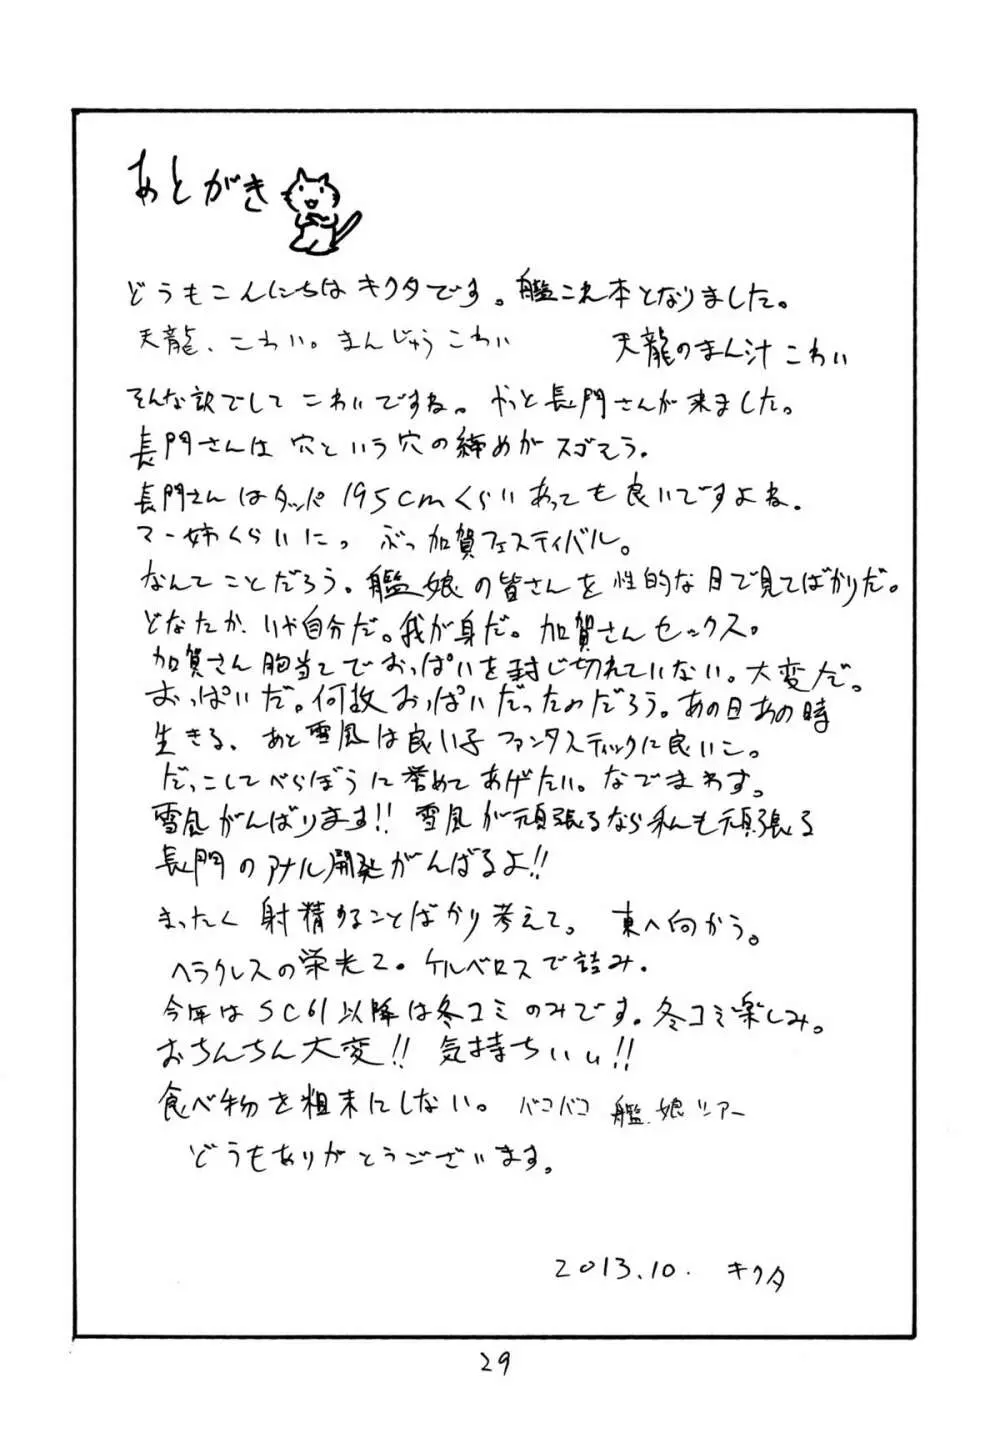 あとがき
どうもこんにちはキクタです。艦これ本となりました。
天龍、こわい。まんじゅうこわい 天龍のまん汁こわい
そんな訳でしてこわいですね。やっと長門さんが来ました。
長門さんは穴という穴の締めがスゴそう。
長門さんはタッパ195cmくらいあっても良いですよね。
マー姉くらいに。ぶっ加賀フェスティバル。
なんてことだろう。艦娘の皆さんを性的な目で見てばかりだ。
どなたか、いや自分だ。我が身だ。加賀さんセックス。
加賀さん胸当てでおっぱいを封じ切れていない。大変だ。
おっぱいだ。何故おっぱいだったのだろう。あの日あの時
生きる、あと雪風は良い子ファンタスティックに良いこ。
だっこしてべらぼうに誉めてあげたい。なでまわす。
雪風がんばります!! 雪風が頑張るなら私も頑張る
長門のアナル開発がんばるよ!!
まったく射精することばかり考えて。 東へ向かう。
ヘラクレスの栄光2。ケルベロスで詰み。
今年はSC61以降は冬コミのみです。冬コミ楽しみ。
おちんちん大変!! 気持ちいい!!
食べ物を粗末にしない。バコバコ艦娘ツアー
どうもありがとうございます。
2013.10. キクタ
29